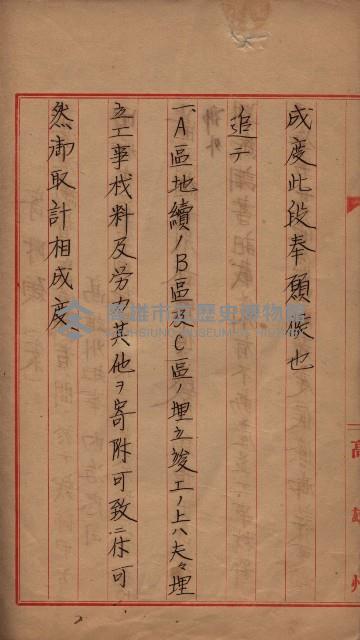 成度此段奉願候也
追テ
一、A區地續ノB區及C區ノ埋立竣工ノ上ハ夫々埋
立工事材料及労力其他ヲ寄附可致ニ付可
然御取計相成度
高雄州
高雄市立歷史博物館
KAOHSIUNG MUSEUM OF HISTORY